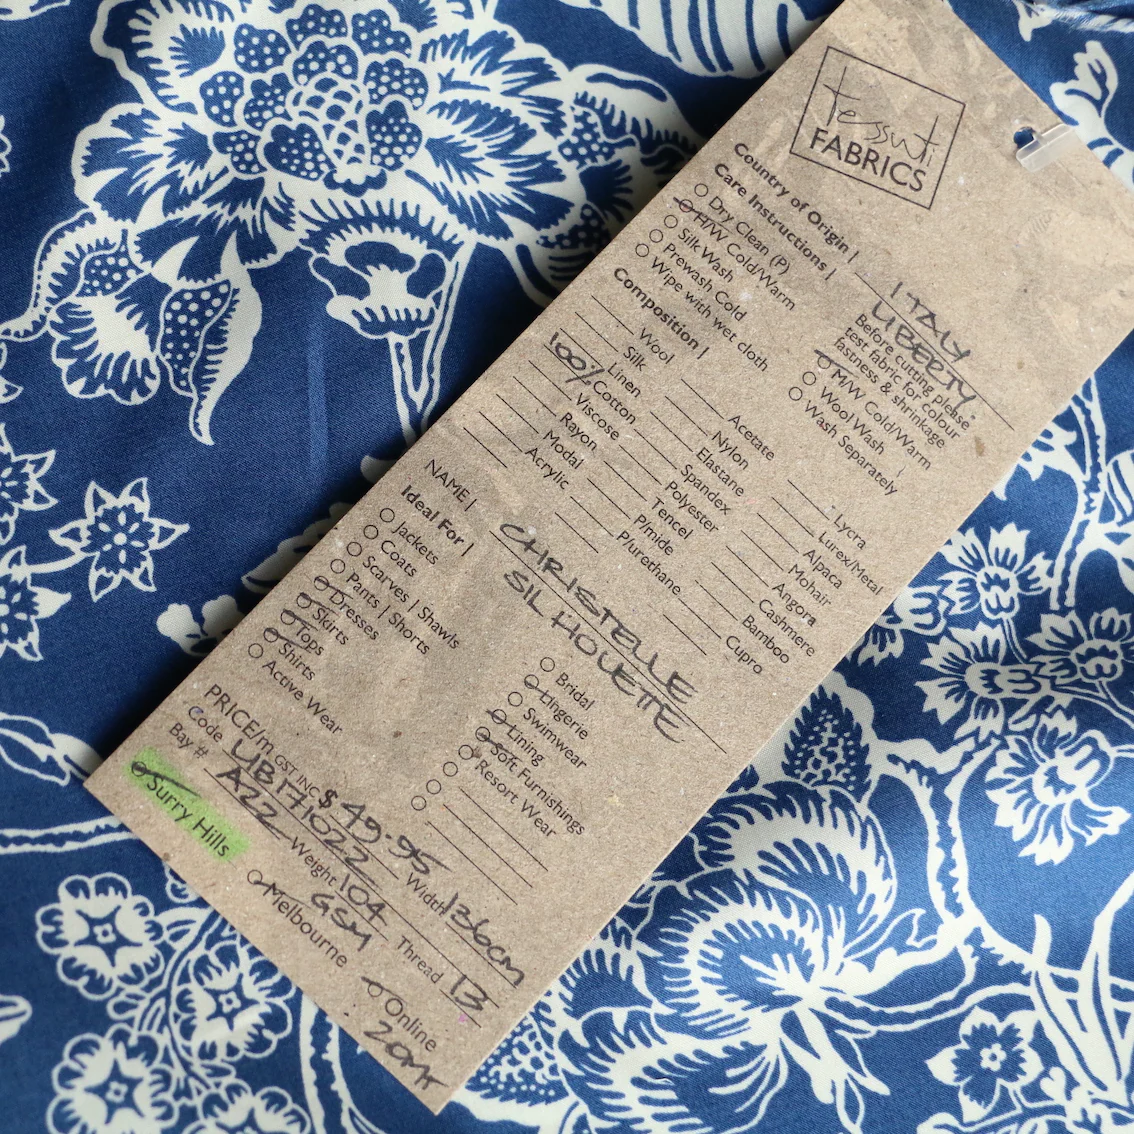 tessuti
FABRICS
Country of Origin | ITALY
Care Instructions | LIBERTY.
Dry Clean (P)
H/W Cold/Warm
Silk Wash
Prewash Cold
Wipe with wet cloth
Before cutting please
test fabric for colour
fastness & shrinkage
M/W Cold/Warm
Wool Wash
Wash Separately
Composition |
Wool
Silk
Linen
100% Cotton
Viscose
Rayon
Modal
Acrylic
Acetate
Nylon
Elastane
Spandex
Polyester
Tencel
P/mide
P/urethane
Lycra
Lurex/Metal
Alpaca
Mohair
Angora
Cashmere
Bamboo
Cupro
NAME | CHRISTELLE
SILHOUETTE
Ideal For |
Jackets
Coats
Scarves | Shawls
Pants | Shorts
Dresses
Skirts
Tops
Shirts
Active Wear
Bridal
Lingerie
Swimwear
Lining
Soft Furnishings
Resort Wear
PRICE/m GST INC $49.95 Width 136cm
Code LIB171022 Weight 104 GSM Thread 13
Bay # A22
Surry Hills
Melbourne
Online